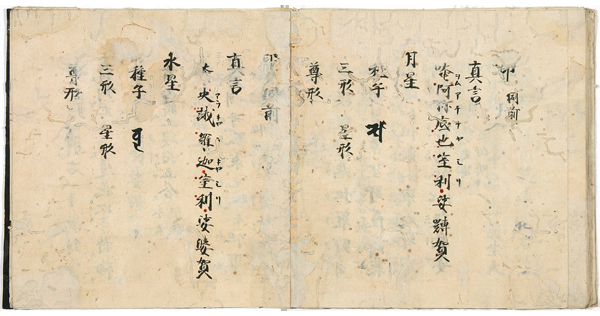 印 同前
真言
唵阿你底也室利娑嚩賀
月星
種子
三形 星形
尊形
印 同前
真言
央誐羅迦室利娑嚩賀
水星
種子
三形 星形
尊形